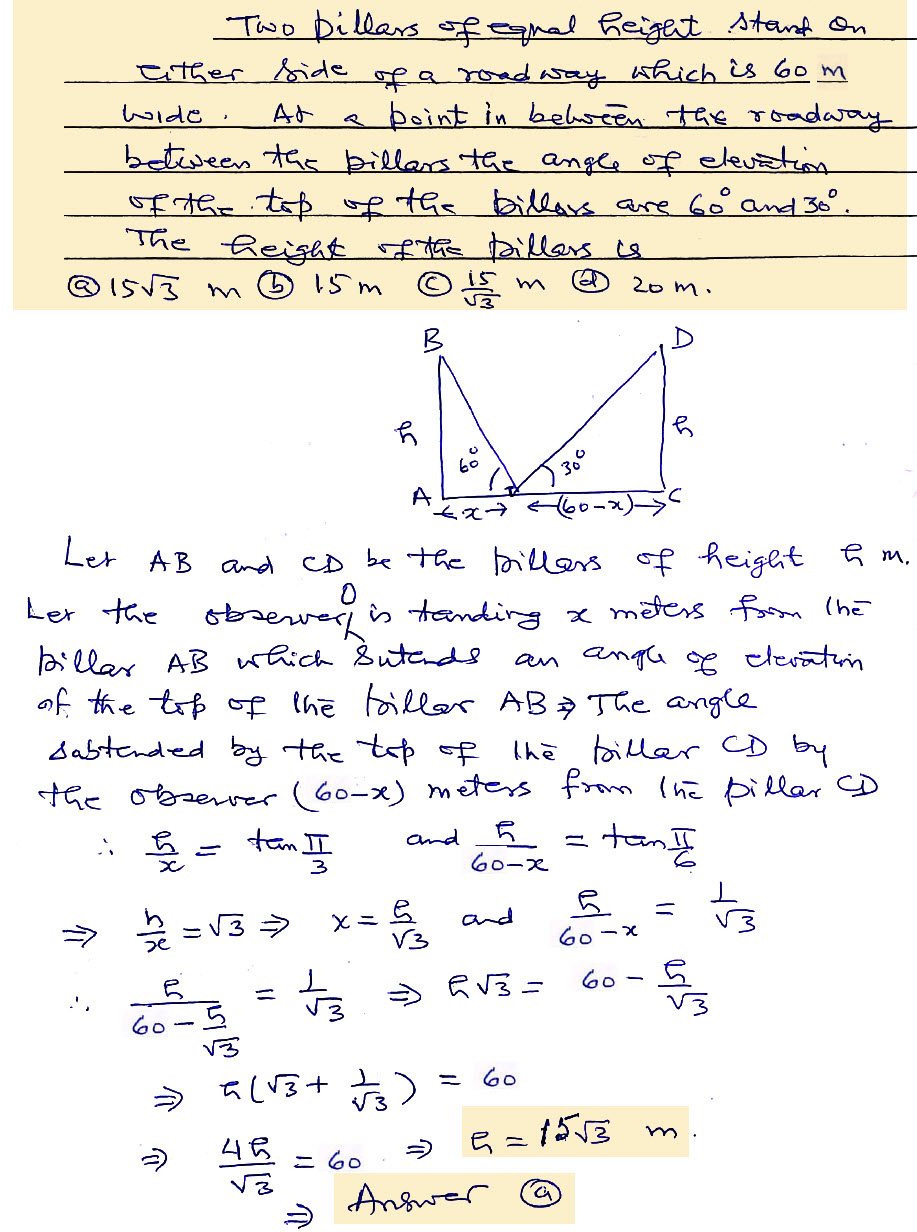 Two pillars of equal height stand on
either side of a roadway which is 60 m
wide. At a point in between the roadway
between the pillars the angle of elevation
of the top of the pillars are 60° and 30°.
The height of the pillars is
ⓐ 15√3 m ⓑ 15 m ⓒ 15/√3 m ⓓ 20 m.
B D
h h
60° 30°
A C
←x→ ←(60-x)→
Let AB and CD be the pillars of height h m.
O
Let the observer is tanding x meters from the
pillar AB which sutends an angle of elevation
of the top of the pillar AB The angle
sabtended by the top of the pillar CD by
the observer (60-x) meters from the pillar CD
∴ h/x = tan π/3 and h/(60-x) = tan π/6
⇒ h/x = √3 ⇒ x = h/√3 and h/(60-x) = 1/√3
∴ h/(60-h/√3) = 1/√3 ⇒ h√3 = 60 - h/√3
⇒ h(√3 + 1/√3) = 60
⇒ 4h/√3 = 60 ⇒ h = 15√3 m.
⇒ Answer ⓐ